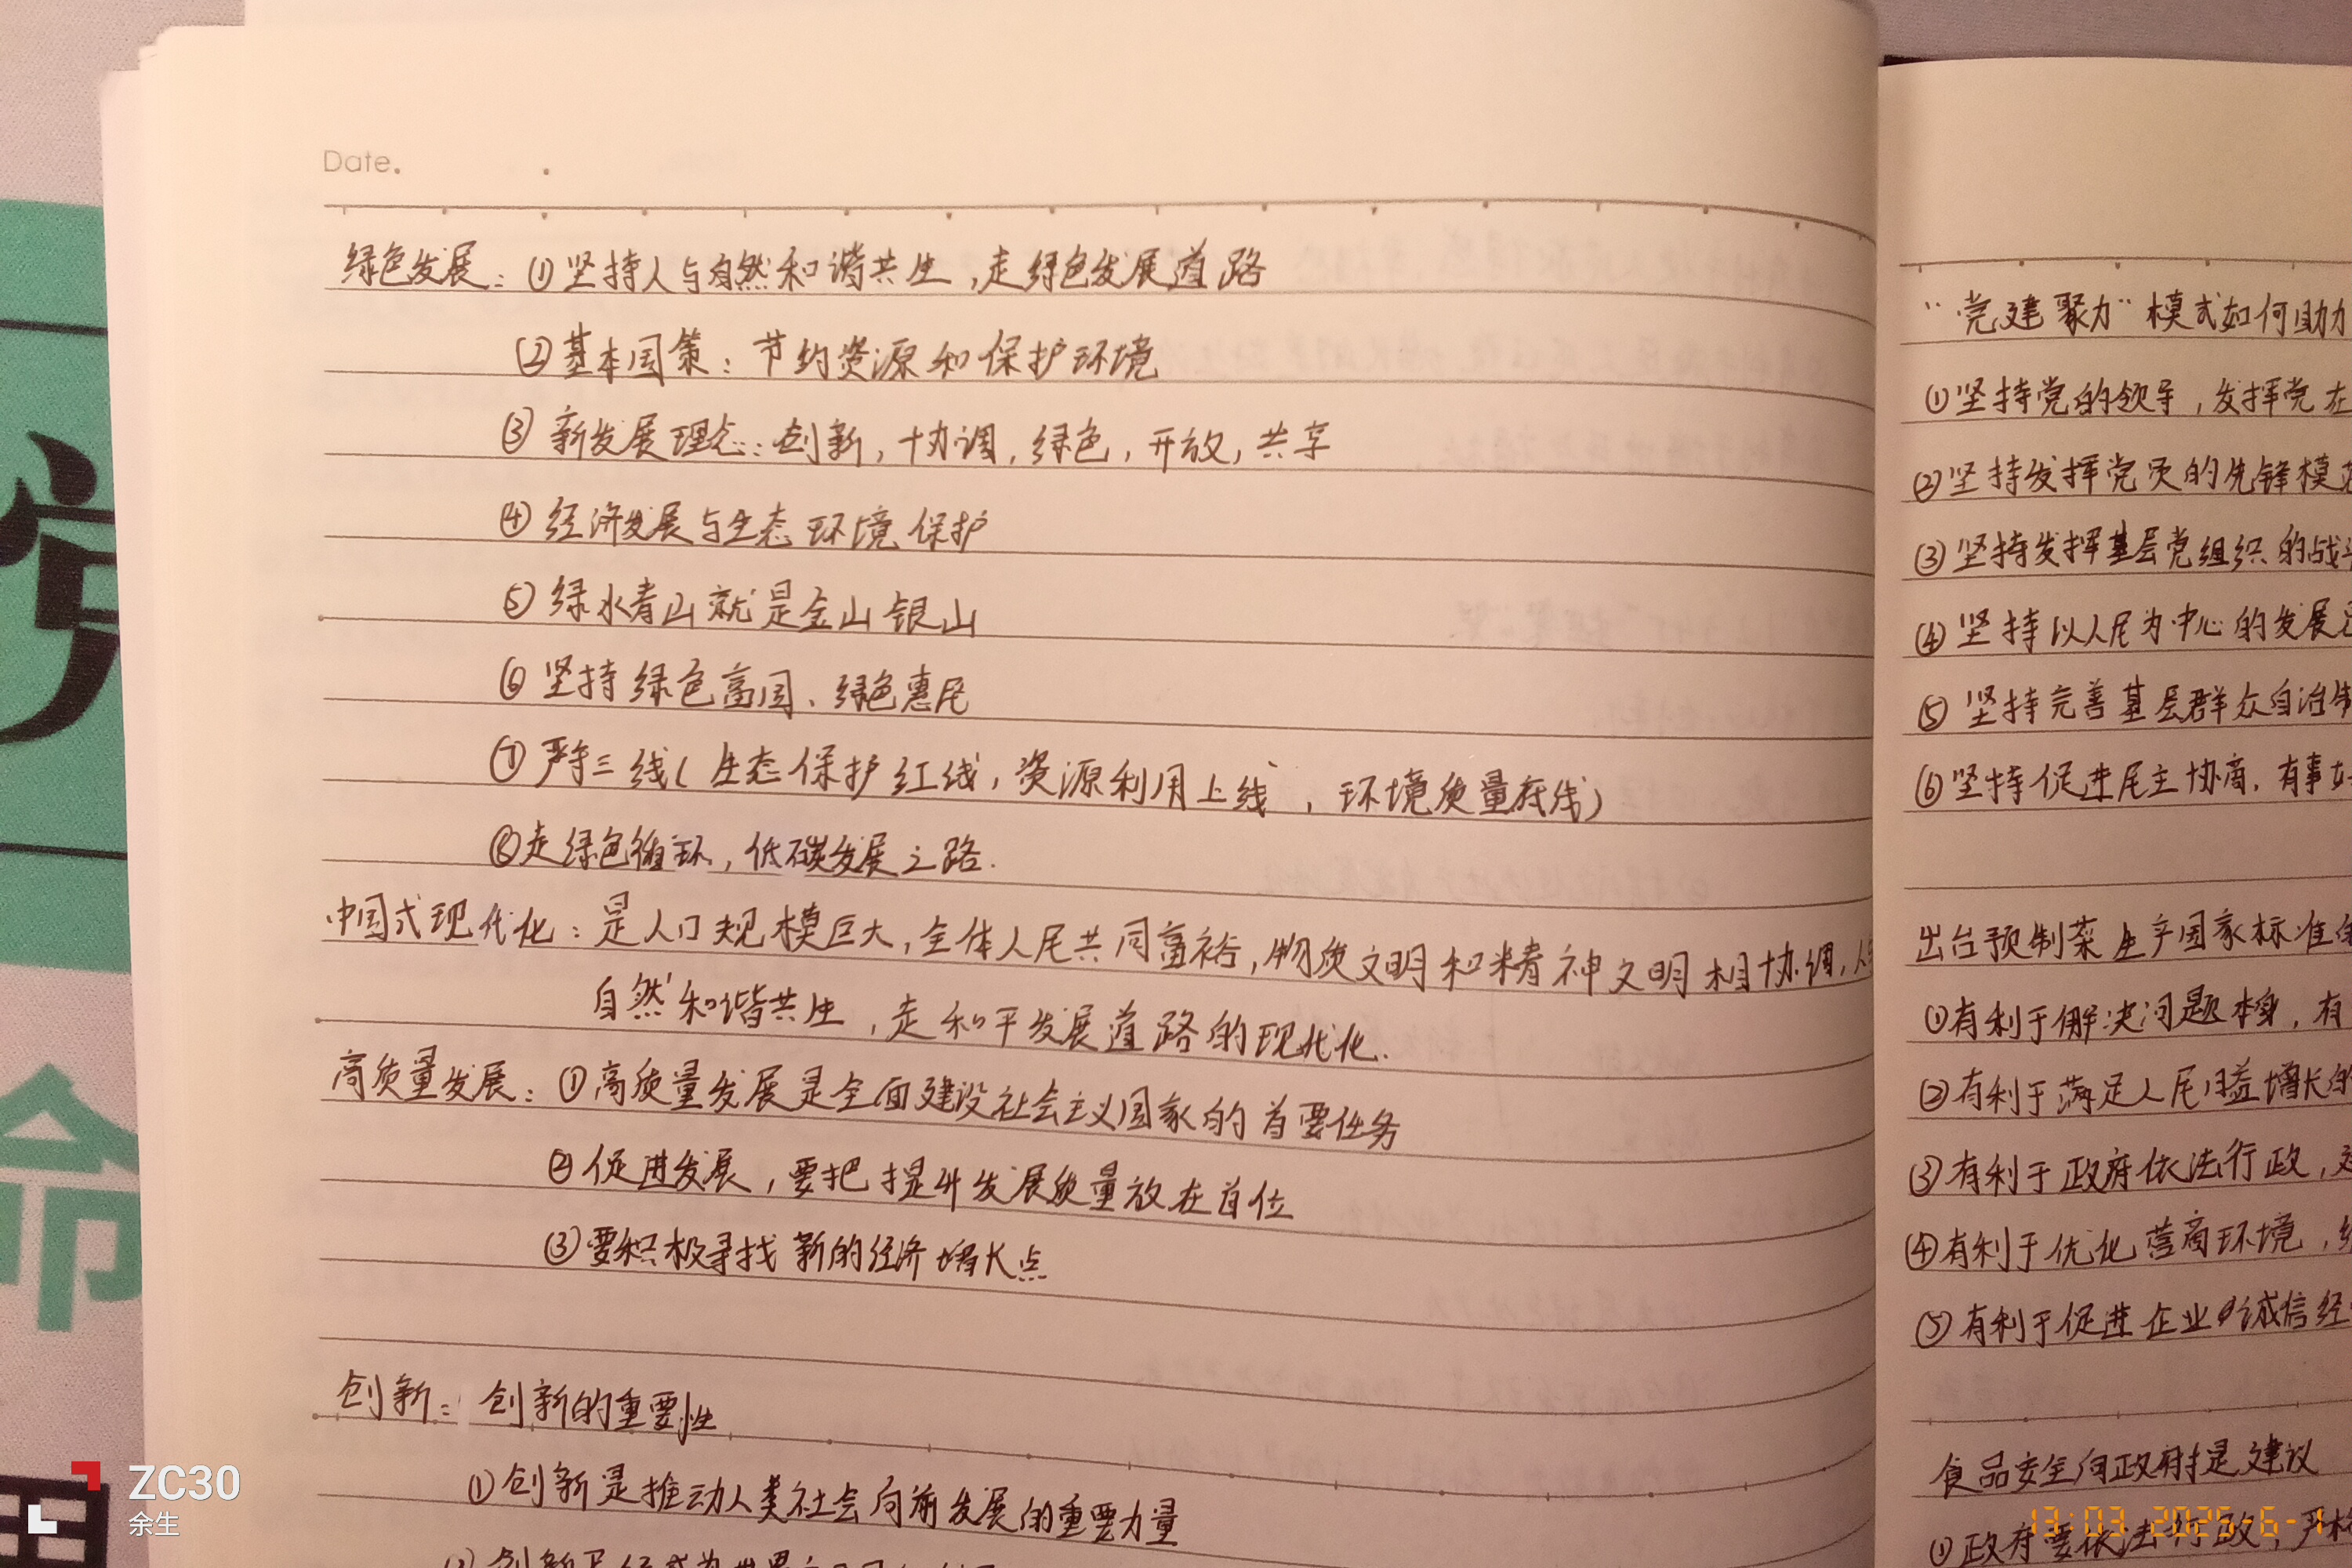 Date.
绿色发展：①坚持人与自然和谐共生，走绿色发展道路
②基本国策：节约资源和保护环境
③新发展理念：创新，协调，绿色，开放，共享
④经济发展与生态环境保护
⑤绿水青山就是金山银山
⑥坚持绿色富国、绿色惠民
⑦严守三线（生态保护红线，资源利用上线，环境质量底线）
⑧走绿色循环，低碳发展之路.
中国式现代化：是人口规模巨大，全体人民共同富裕，物质文明和精神文明相协调，人与
自然和谐共生，走和平发展道路的现代化.
高质量发展：①高质量发展是全面建设社会主义国家的首要任务
②促进发展，要把提升发展质量放在首位
③要积极寻找新的经济增长点
创新：创新的重要性
①创新是推动人类社会向前发展的重要力量
“党建聚力”模式如何助力
①坚持党的领导，发挥党在
②坚持发挥党员的先锋模范
③坚持发挥基层党组织的战斗
④坚持以人民为中心的发展思
⑤坚持完善基层群众自治制
⑥坚持促进民主协商，有事好
出台预制菜生产国家标准的
①有利于解决问题本身，有
②有利于满足人民日益增长的
③有利于政府依法行政，
④有利于优化营商环境，
⑤有利于促进企业诚信经
食品安全向政府提建议
①政府要依法行政，严格
党
命
ZC30
余生
13:03 2025-6-1